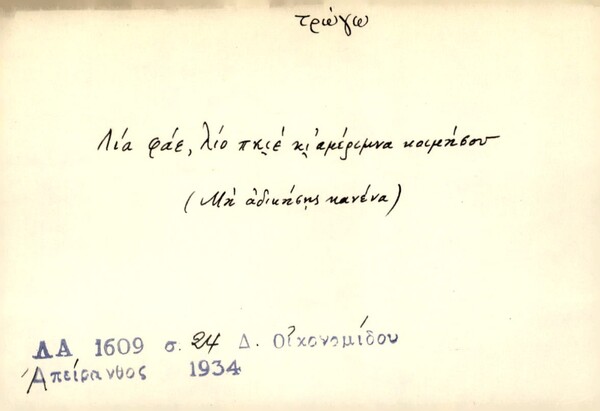 τρώγω
Λία φάε, λίο πκιέ κι ἀμέριμνα κοιμήσου
(Μὴ ἀδικήσῃς κανένα)
ΛΑ 1609 σ. 24 Δ. Οἰκονομίδου
Ἀπείρανθος 1934